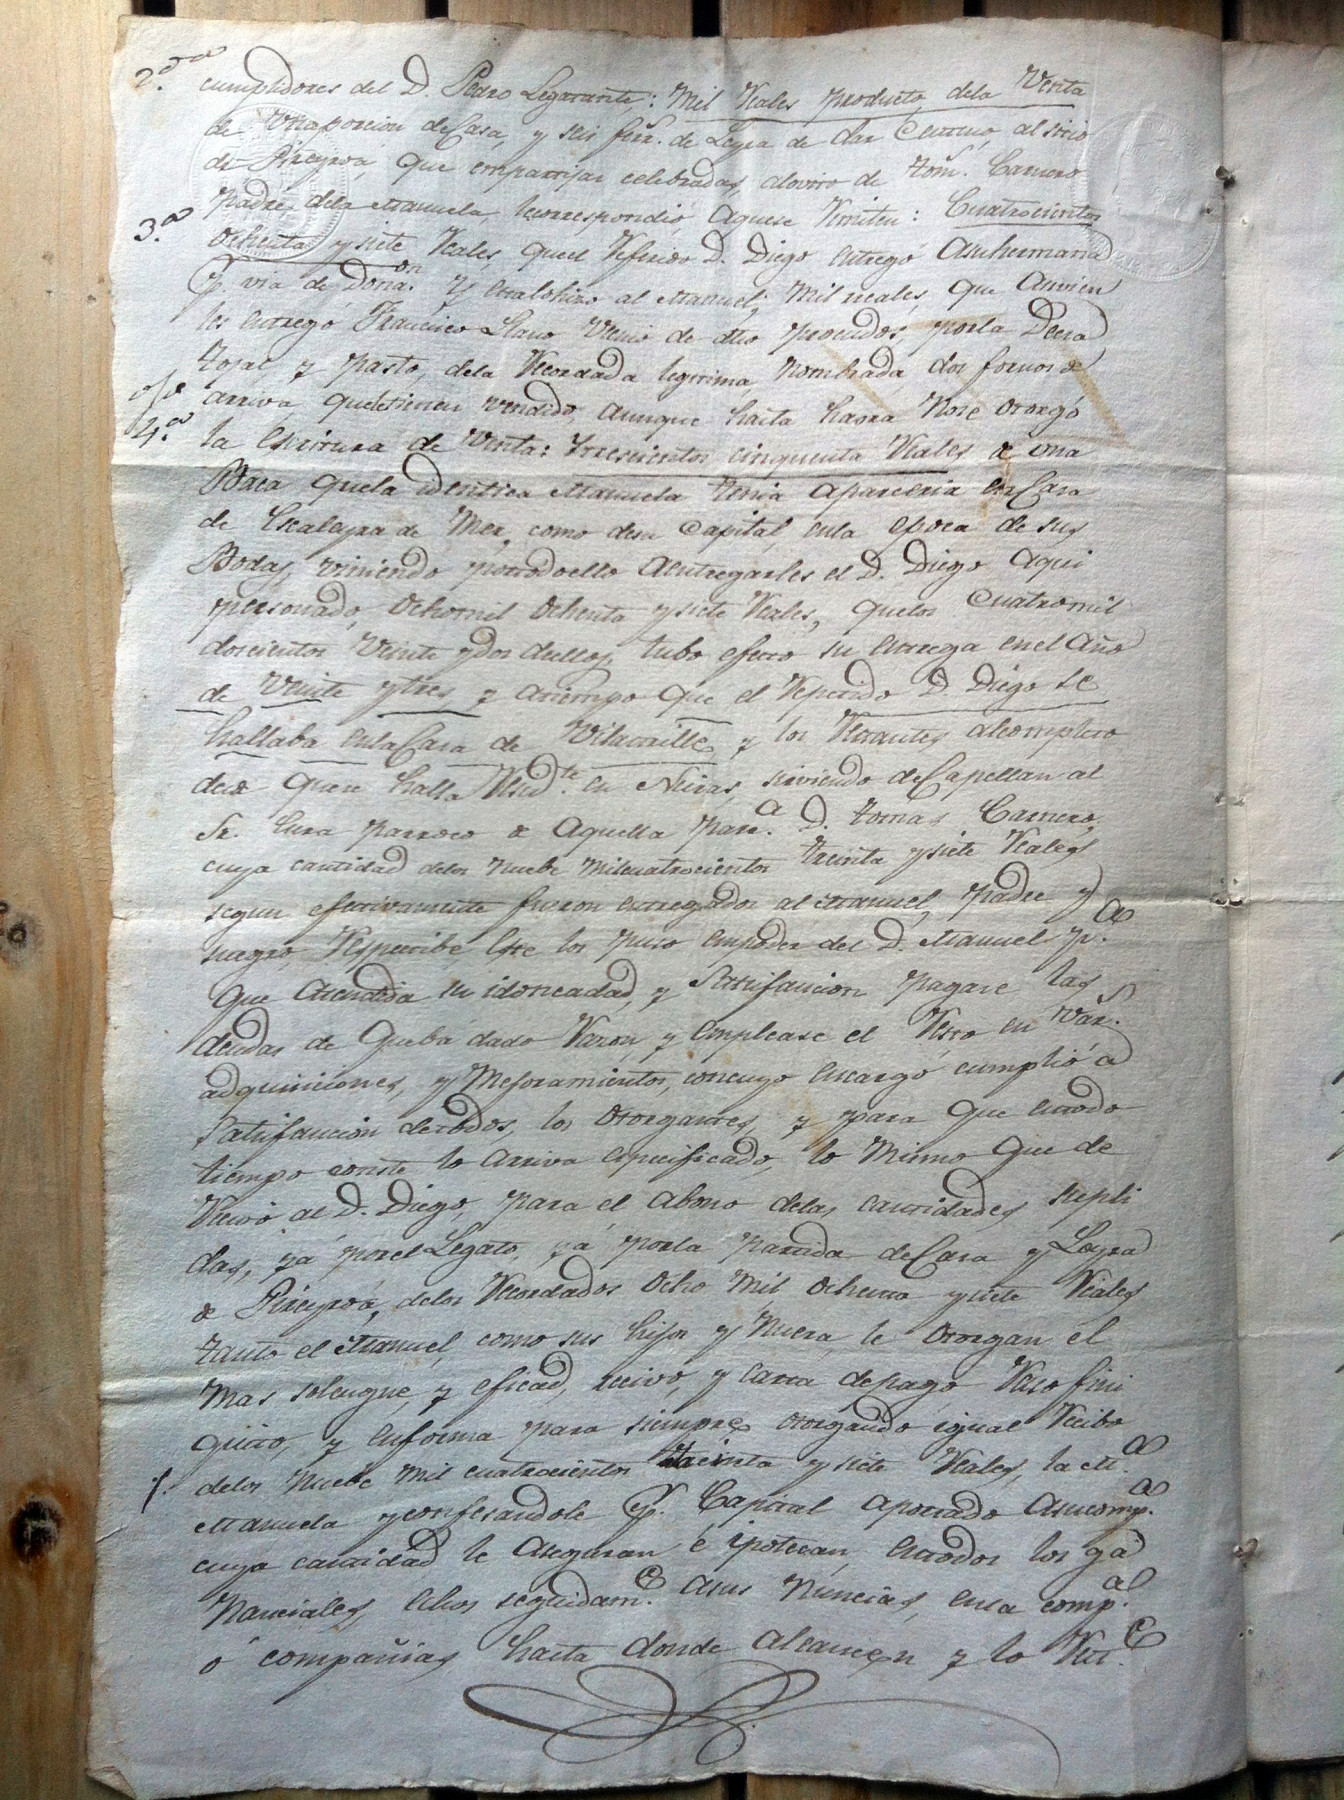 2.da cumplidores del D. Pedro Legarante: Mil Reales producto dela Venta
de Vnaporcion deCasa, y seis ferr. de Leyra de dar Centeno, al sitio
de Piñeyroá, que enpartijas celebradas, alovito de Tom. Carnero
Padre dela Manuela, lecorrespondió Aquese Vmiten: Cuatrocientos
3.a Ochenta y siete Reales, queel Referido D. Diego entregó Asuhermana
Pr. via de Donn. y lealohizo al Manuel; Mil reales, que Anvien
les entrego Francisco Llano Vecino de dho procudos, porla Deera
tojal y Pasto, dela Recordada legitima Nombrada dos fornos de
arriva queletienen vendido, aunque hasta haora Nose otorgó
4.a la Escritura de Venta: Trescientos cinquenta Reales de una
Baca quela identica Manuela tenia Aparceria en Casa
de Escaleyra de Mer, como desu Capital, enla epoca de sus
Bodas, viniendo portodoello Aentregarles el D. Diego Aqui
personado, Ochomil Ochenta ysiete Reales, quelos Cuatromil
doscientos Veinte ydos deellos, tubo efecto su entrega enel Año
de Veinte ytres, y atiempo que el Repetido D. Diego se
hallaba enlaCasa de Vilartille, y los Restantes alcompleto
desde quese halla Resid.te en Neiras, sirviendo deCapellan al
Sr. Cura parroco de Aquella Parr.a D. Tomas Carnero,
cuya cantidad delos nuebe Milcuatrocientos treinta ysiete Reales
segun efectivamente fueron entregados al Manuel, Padre y
suegro Respective Este los puso enpoder del D. Manuel p.a
que Atendida su idoneadad, y Satisfaucion pagare las
deudas de Queba dado Razon, y emplease el Resto en Var.s
adquiciciones, y Mejoramientos, concuyo encargó cumplió á
Satisfaucion detodos, los Otorgantes, y para que entodo
tiempo conste lo arriva especificado, lo Mismo que de
Recivo al D. Diego, para el Abono delas cantidades supli
das, yá porel Legato, yá porla Partida deCasa y Leyra
de Piñeyroá, delos Recordados Ocho Mil Ochenta ysiete Reales
tanto el Manuel, como sus hijos y Nuera, le Otorgan el
Mas solengne, y eficad, recivo, y Carta depago Raso fini
quito, y enforma para siempre, otorgando igual Recibo
delos Nuebe Mil cuatrocientos treinta y siete Reales, la M.a
Manuela yconfesandole Pr. Capital aportado Asucomp.a
cuya cantidad le Aseguran é ipotecan, entodos los gá
Nanciales echos seguidam.e asus Nuncias, enla comp.a
ó compañias hasta donde alcancen y lo Rest.e